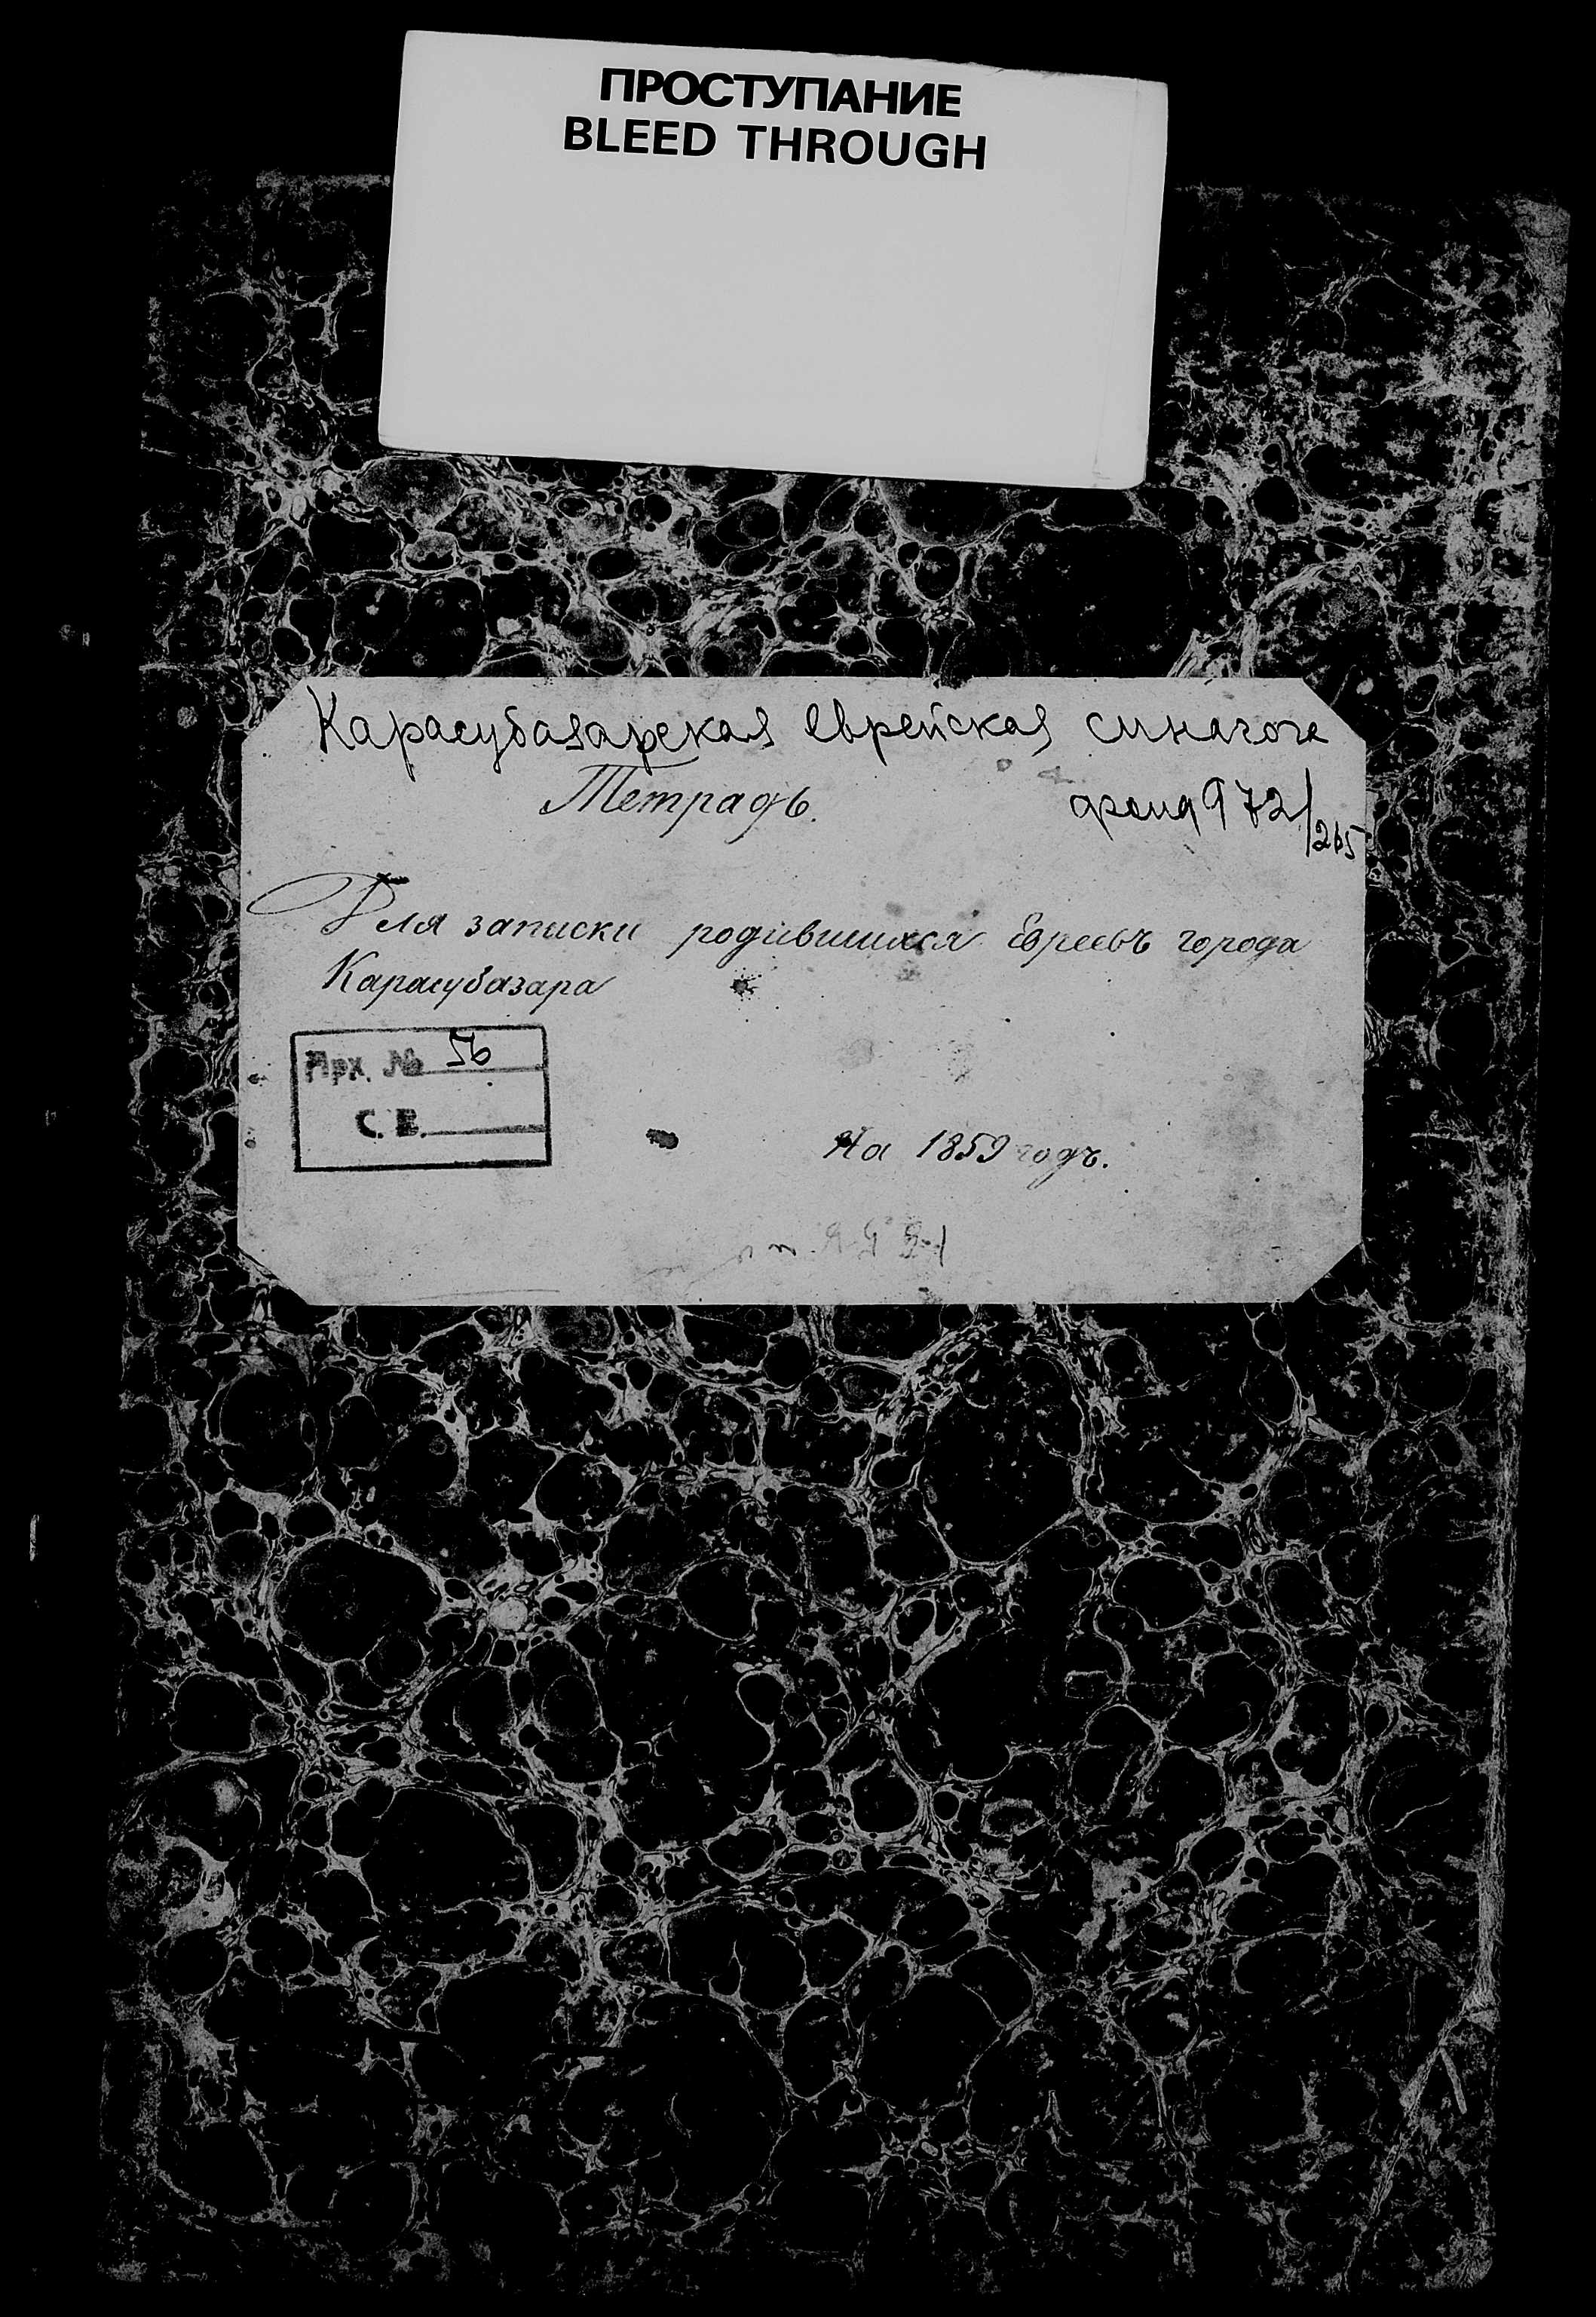 ПРОСТУПАНИЕ
BLEED THROUGH
Карасубазарская еврейская синагога
Тетрадь.
фонд 972/265
Для записки родившихся Евреевъ города
Карасубазара
Арх. № 56
С. В.
На 1859 годъ.